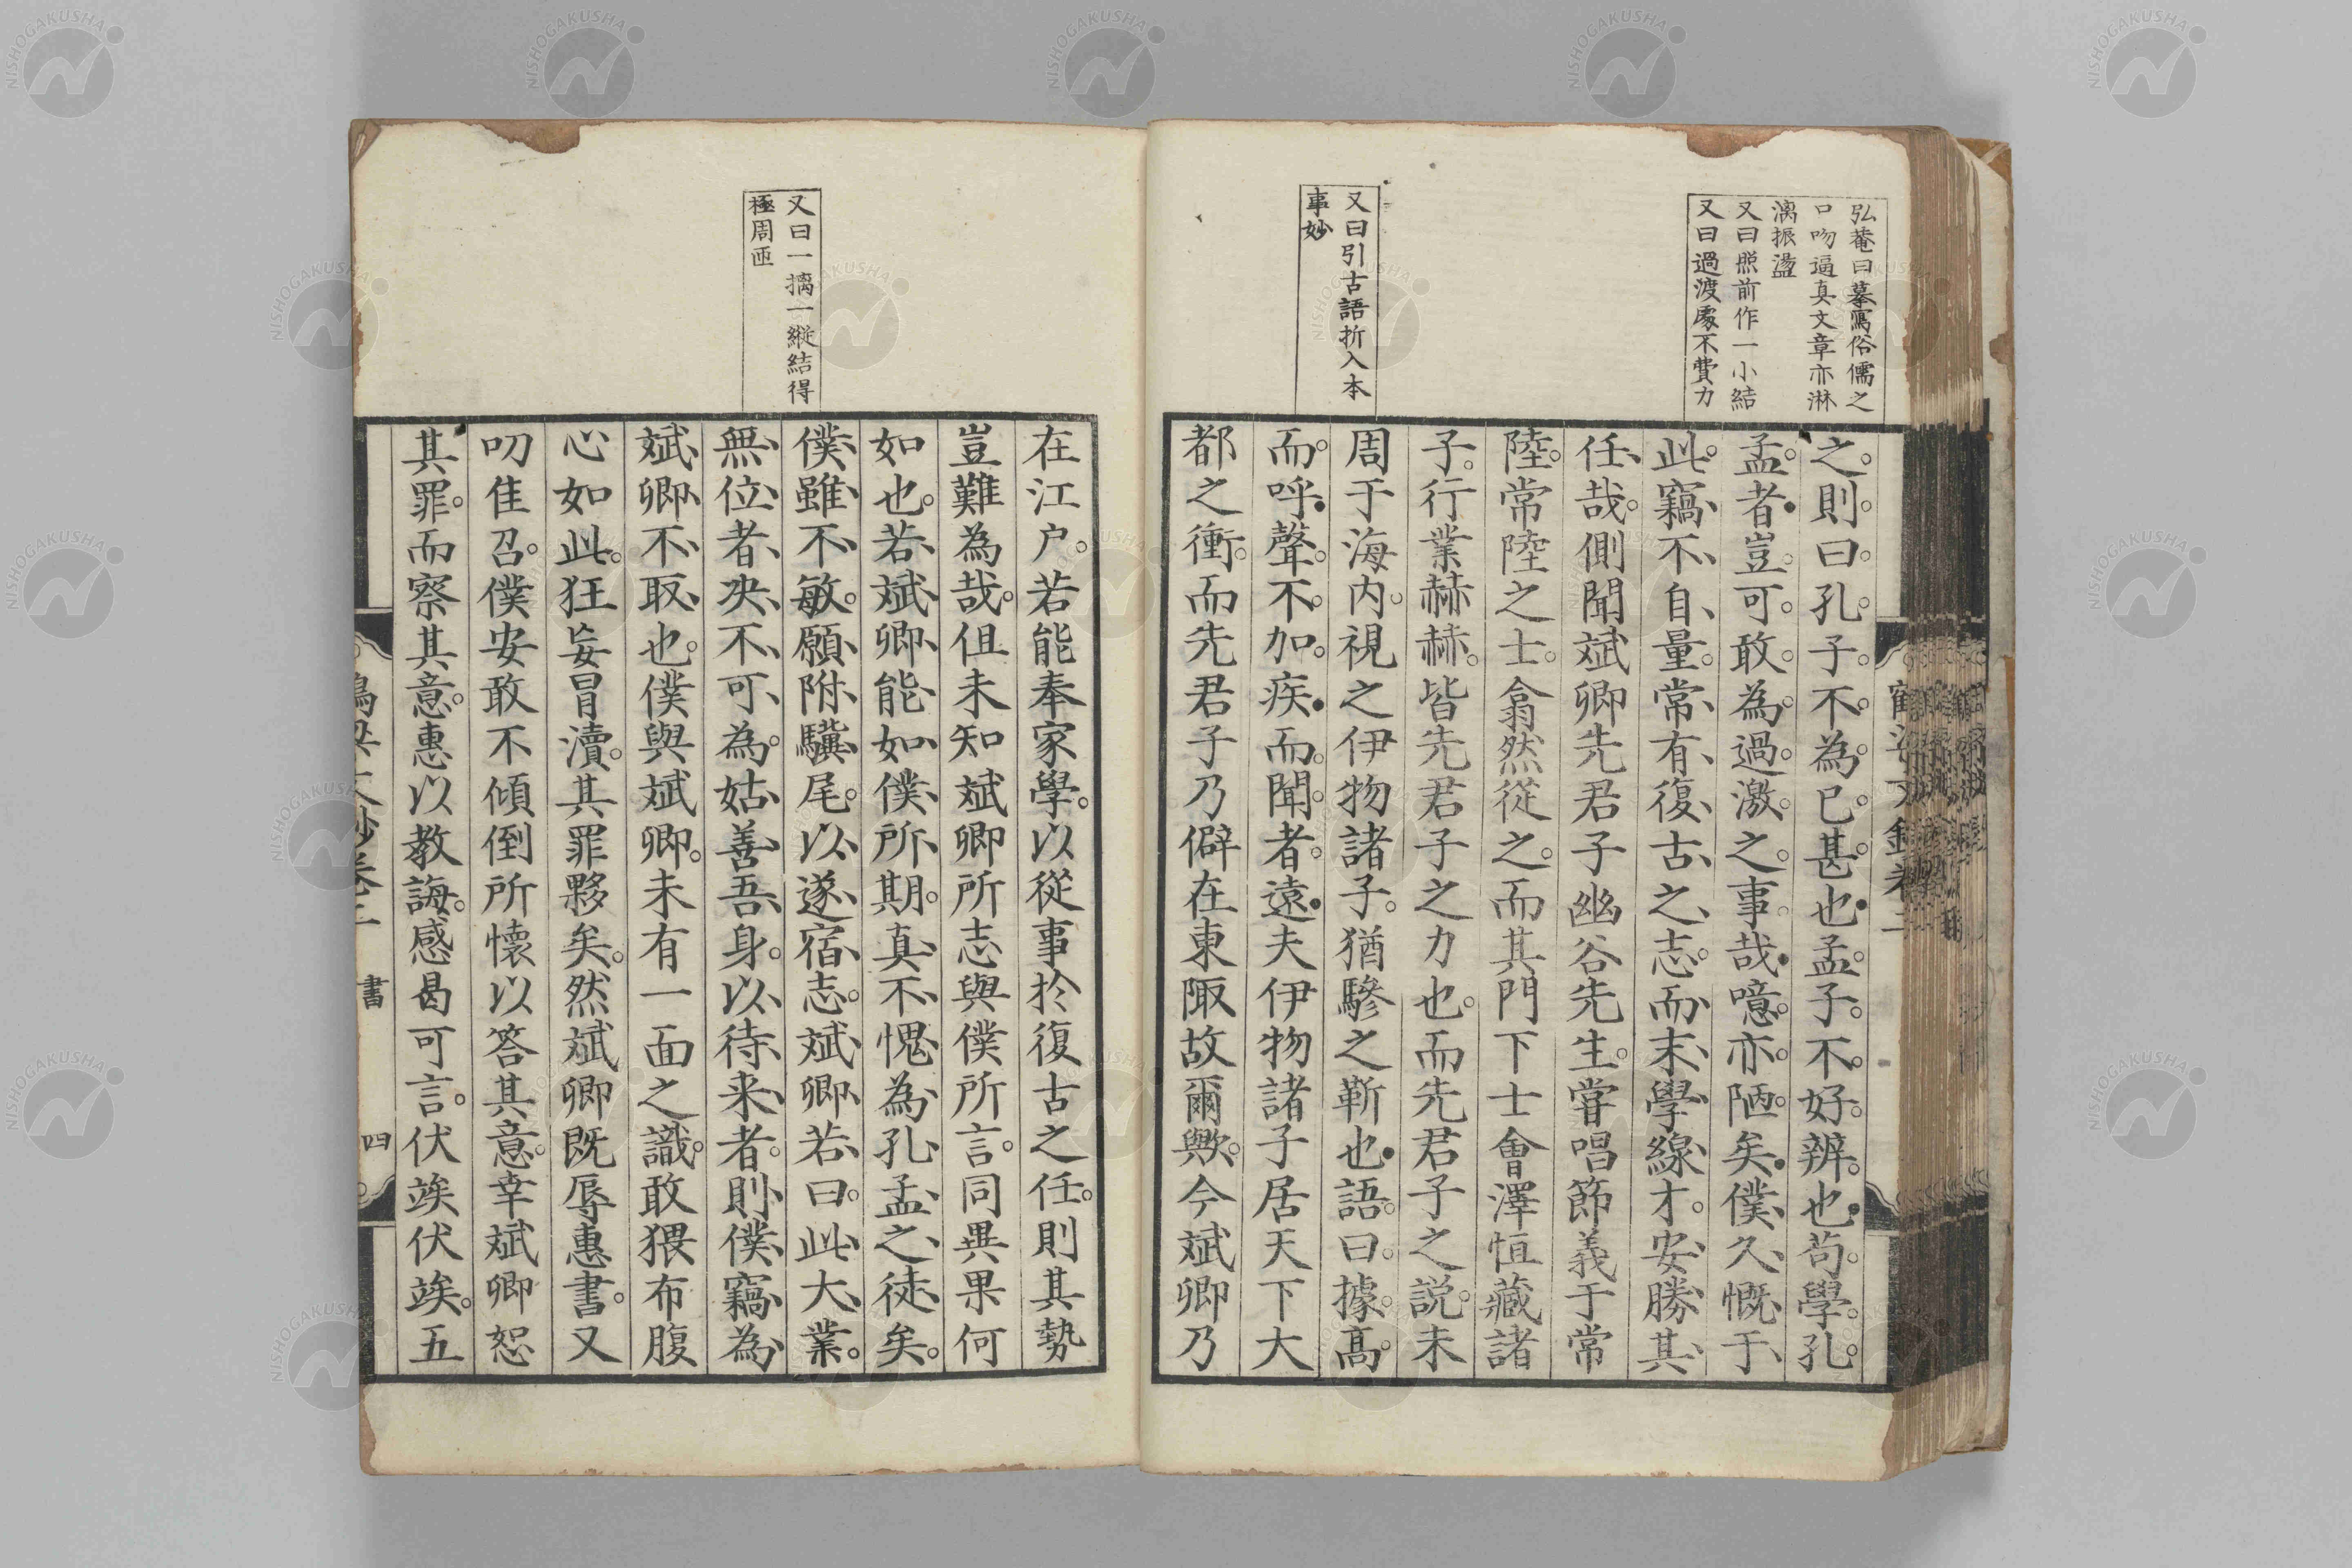 弘菴曰摹寫俗儒之
口吻逼真文章亦淋
漓振盪
又曰照前作一小結
又曰過渡處不費力
又曰引古語折入本
事妙
之則曰孔子不為已甚也孟子不好辨也苟學孔
孟者豈可敢為過激之事哉噫亦陋矣僕久慨于
此竊不自量常有復古之志而末學線才安勝其
任哉側聞斌卿先君子幽谷先生嘗唱節義于常
陸常陸之士翕然從之而其門下士會澤恒藏諸
子行業赫赫皆先君子之力也而先君子之説未
周于海內視之伊物諸子猶驂之靳也語曰據髙
而呼聲不加疾而聞者遠夫伊物諸子居天下大
都之衝而先君子乃僻在東陬故爾歟今斌卿乃
又曰一擒一縱結得
極周匝
在江户若能奉家學以從事於復古之任則其勢
豈難為哉但未知斌卿所志與僕所言同異果何
如也若斌卿能如僕所期真不愧為孔孟之徒矣
僕雖不敏願附驥尾以遂宿志斌卿若曰此大業
無位者决不可為姑善吾身以待来者則僕竊為
斌卿不取也僕與斌卿未有一面之識敢猥布腹
心如此狂妄冒瀆其罪夥矣然斌卿既辱惠書又
叨隹召僕安敢不傾倒所懷以答其意幸斌卿恕
其罪而察其意惠以教誨感曷可言伏竢伏竢五
書
四